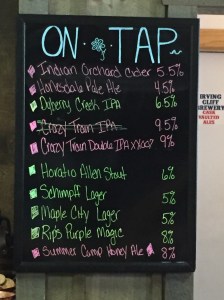 ON TAP
Indian Orchard Cider 5.5%
Honesdale Pale Ale 4.5%
Doherty Creek IPA 6.5%
Crazy Train IPA 9.5%
Crazy Train Double IPA 9%
Horatio Allen Stout 6%
Schimpff Lager 5%
Maple City Lager 5%
Rip's Purple Magic 8%
Summer Camp Honey Ale 8%
IRVING
CLIFF
BREWERY
CASK
ALES